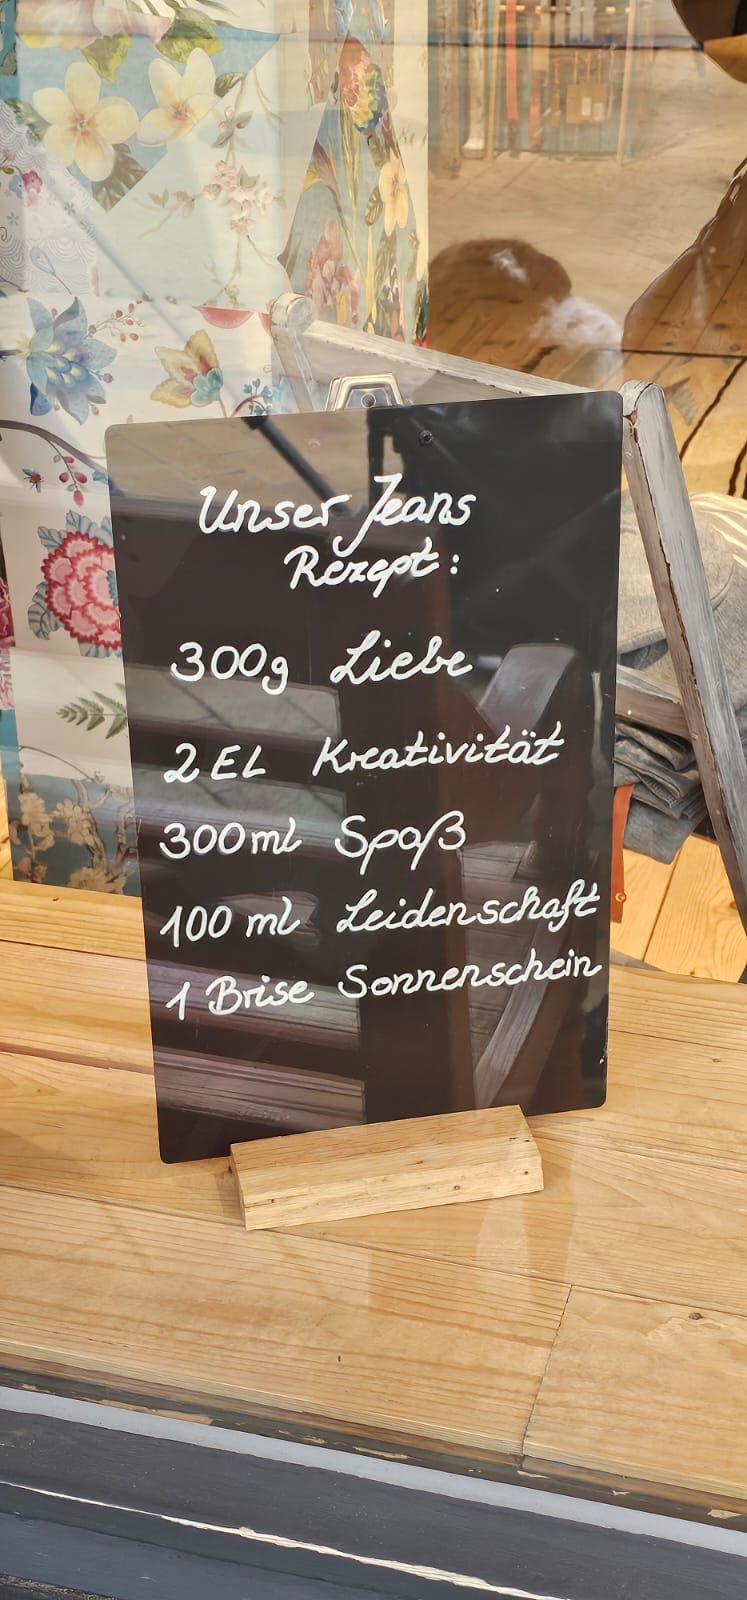 Unser Jeans
Rezept:
300g Liebe
2 EL Kreativität
300ml Spaß
100 ml Leidenschaft
1 Brise Sonnenschein